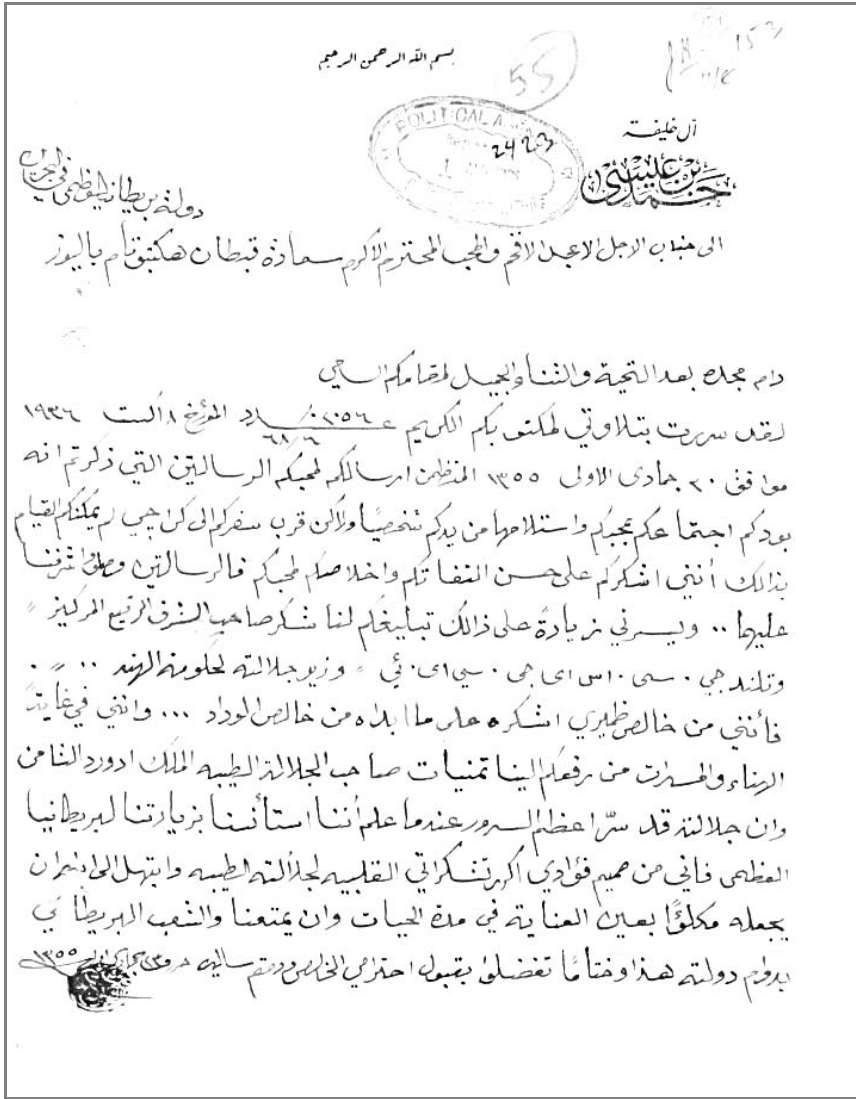 بسم الله الرحمن الرحيم
55
153
POLITICAL A
2423
آل خليفة
حمد بن عيسى
الى جناب الاجل الامجد الافخم والمحب المحترم الاكرم سعادة قبطان هكنبوتام باليوز
دولة بريطانيا العظمى في البحرين
دام مجده بعد التحية والثناء الجميل لمقامكم السامي
لقد سررت بتلاوتي لمكتوبكم الكريم عـــدد ٢٠٥٦ المؤرخ ٨ اكست ١٩٣٦
٦٨/٦
موافق ٢٠ جمادى الاولى ١٣٥٥ المتظمن ارسالكم لمحبكم الرسالتين التي ذكرتم انه
بودكم اجتماعكم بمحبكم واستلامها من يدكم شخصيًا ولاكن قرب سفركم الى كراچي لم يمكنكم القيام
بذالك أنني اشكركم على حسن التفاتكم واخلاصكم لمحبكم فالرسالتين وصلوا شرفنا
عليها .. ويسرني زيادةً على ذالك تبليغكم لنا شكر صاحب الشرف الرفيع المركيز "
وتلند جي . سي . اس اى جي . سي اى . ئي " وزير جلالته لحكومة الهند .. " .
فأنني من خالص ظميري اشكره على ما ابداه من خالص الوداد ... وانني في غاية
الهناء والمسرات من رفعكم الينا تمنيات صاحب الجلالة الطيبه الملك ادورد الثامن
وان جلالته قد سرّ اعظم السرور عندما علم أننا استأنسنا بزيارتنا لبريطانيا
العظمى فاني من صميم فؤادي اكرر تشكراتي القلبيه لجلالته الطيبه وابتهل الى ان
يجعله مكلؤًا بعين العناية في مدة الحيات وان يمتعنا والشعب البريطاني
بدوام دولته هذا وختامًا تفضلوا بقبول احترامي الخالص ودمتم سالمين حرر جمادى ١٣٥٥